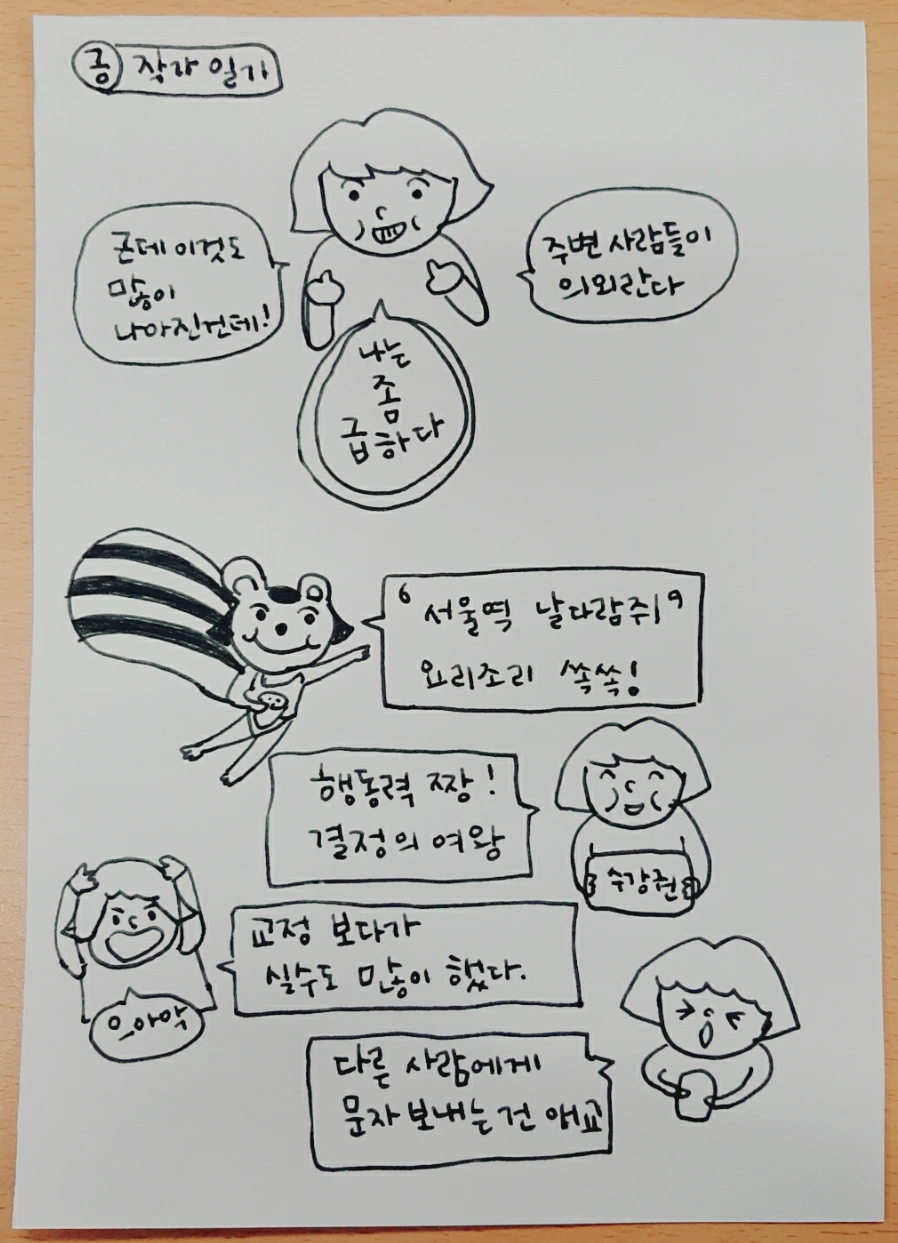 금 작가 일기
나는
좀
급하다
주변 사람들이
의외란다
근데 이것도
많이
나아진건데!
'서울떡 날다람쥐'
요리조리 쏙쏙!
행동력 짱!
결정의 여왕
수강권
교정 보다가
실수도 많이 했다.
으아악
다른 사람에게
문자 보내는 건 애교